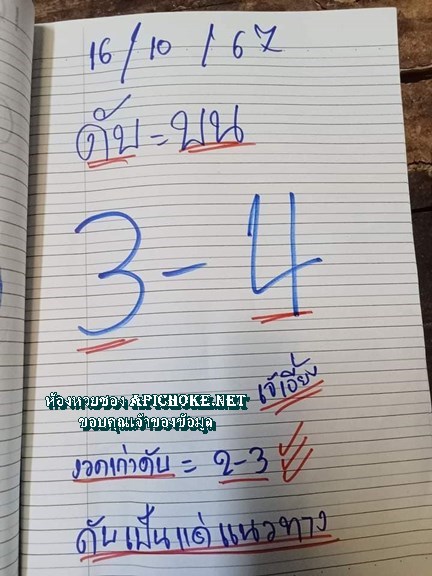 16/10/67
ดับ = บน
3-4
เจ๊เอี่ยง
ห้องหวยซอง APICHOKE.NET
ขอบคุณเจ้าของข้อมูล
งวดเก่าดับ = 2-3
ดับเป็นแค่แนวทาง